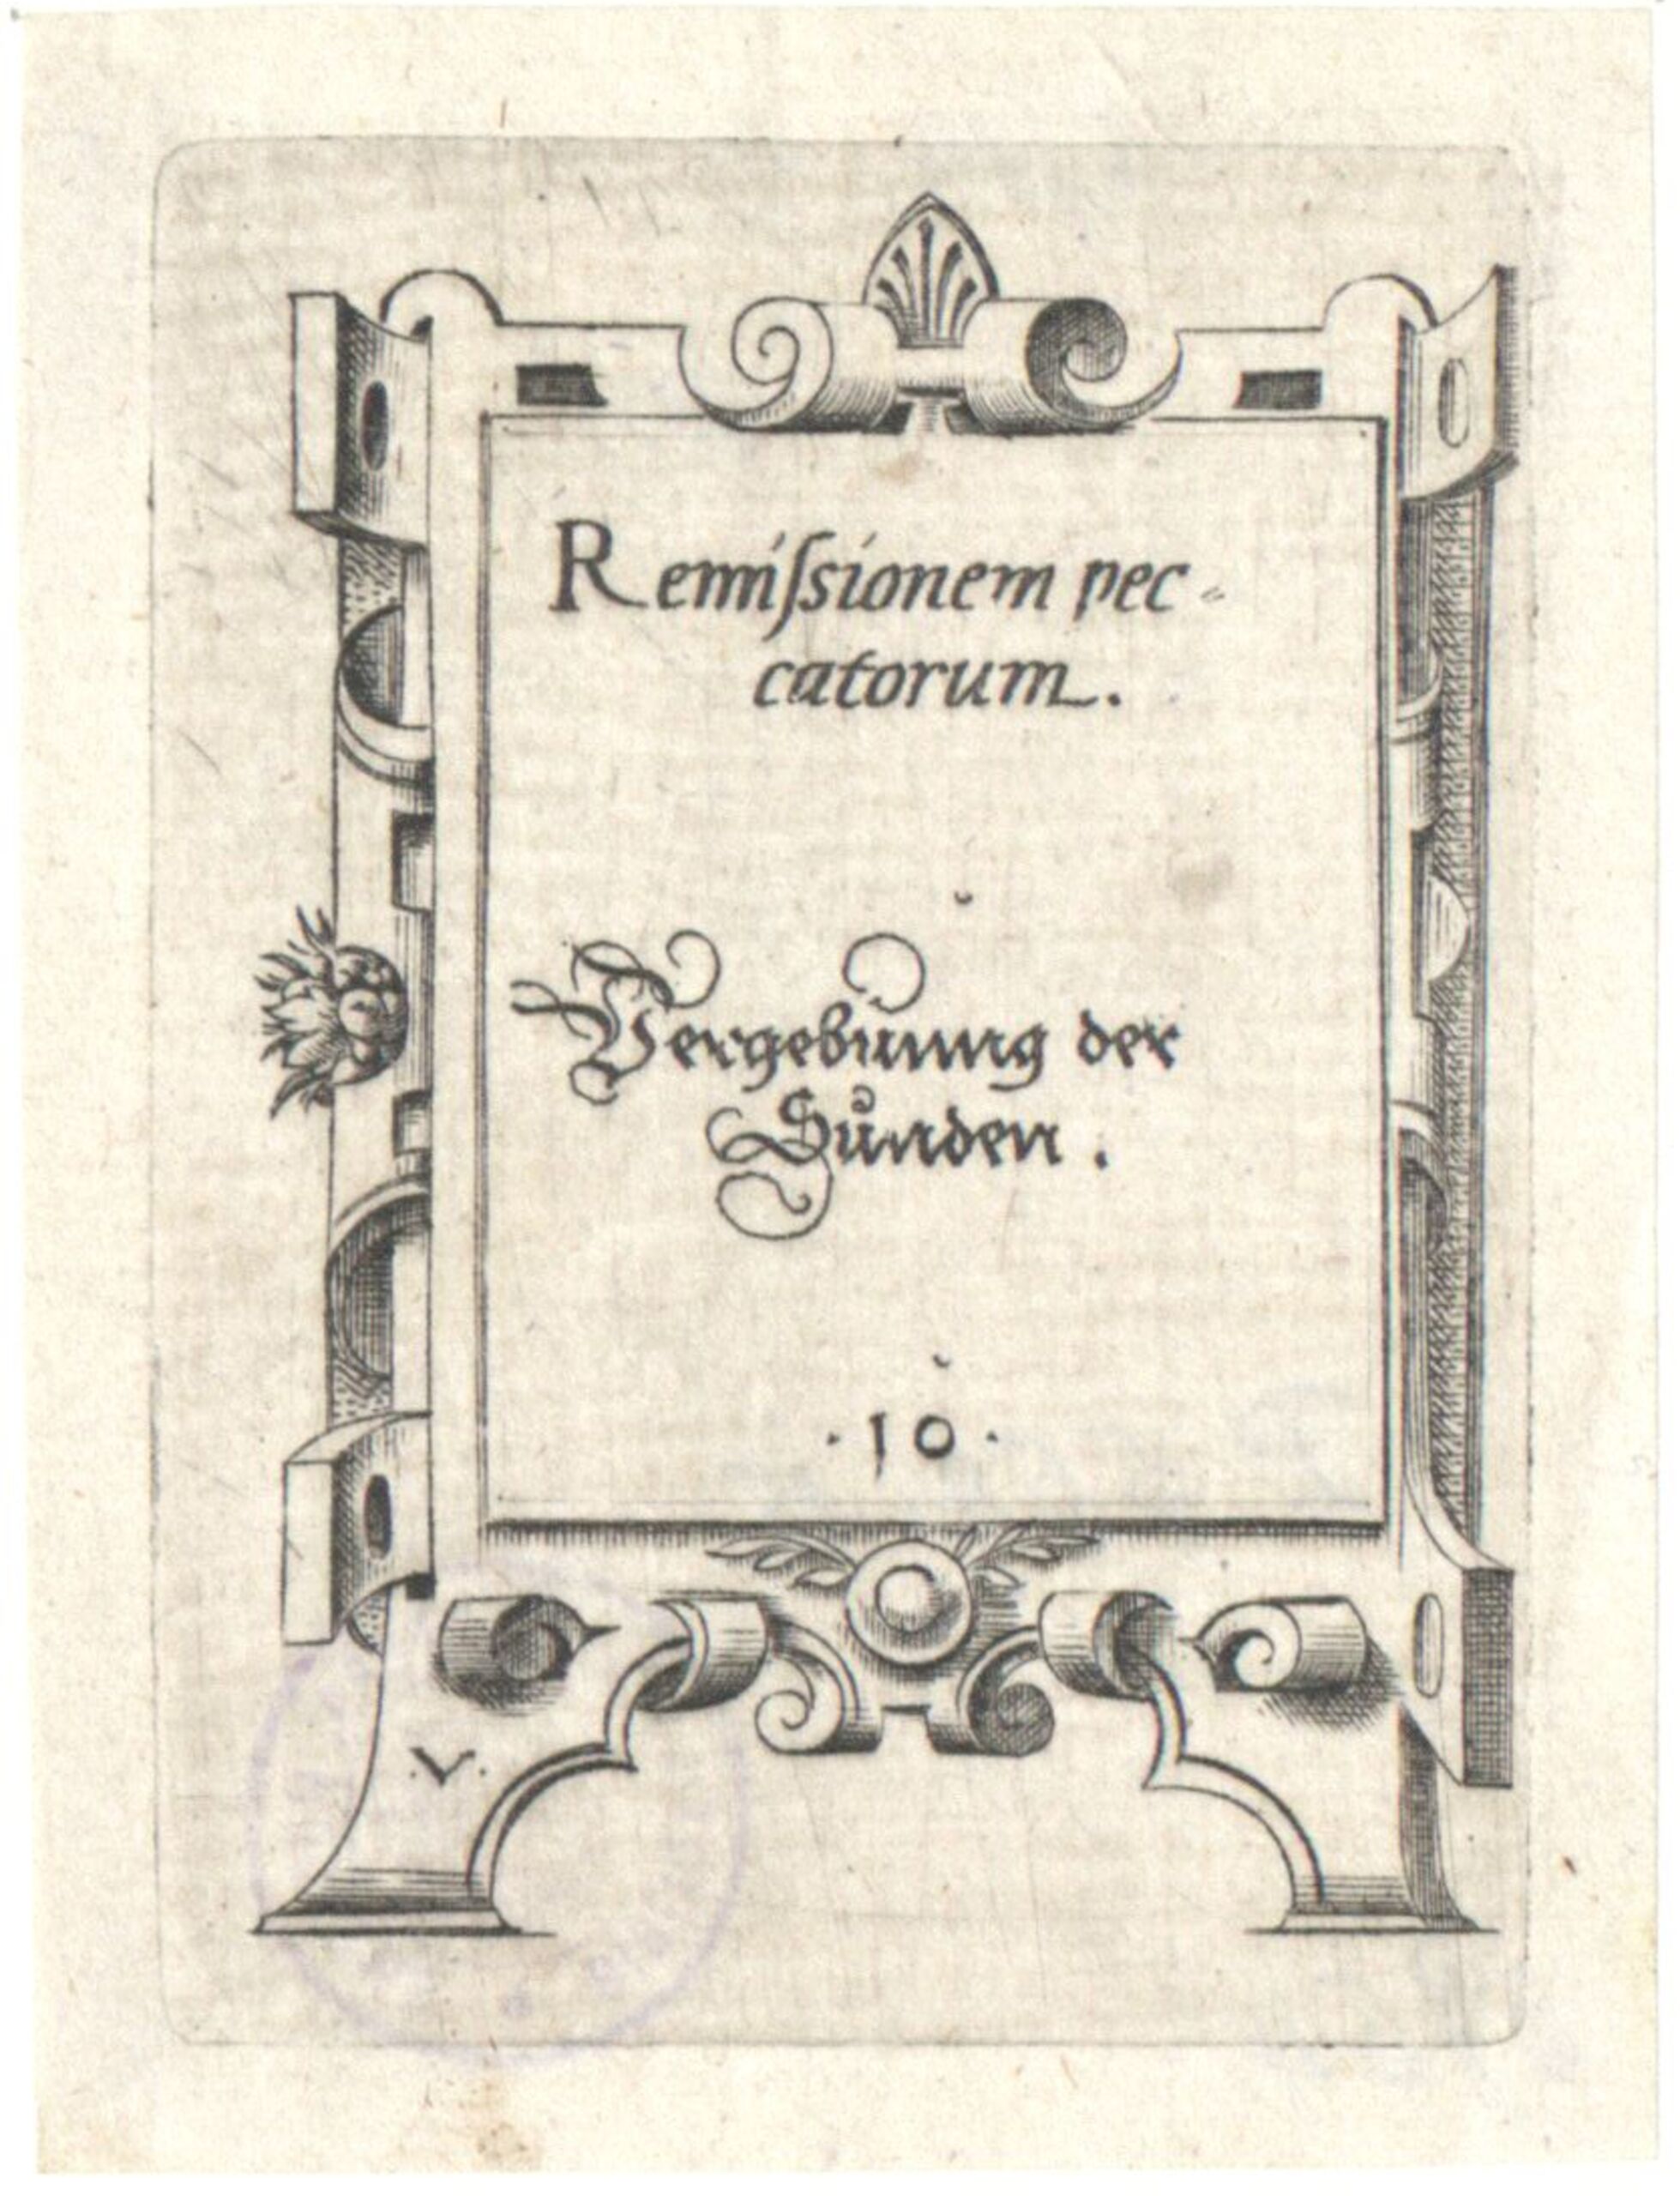 Remiſsionem pec⸗
catorum.
Vergebunng der
Sůnden.
·10·
.V.